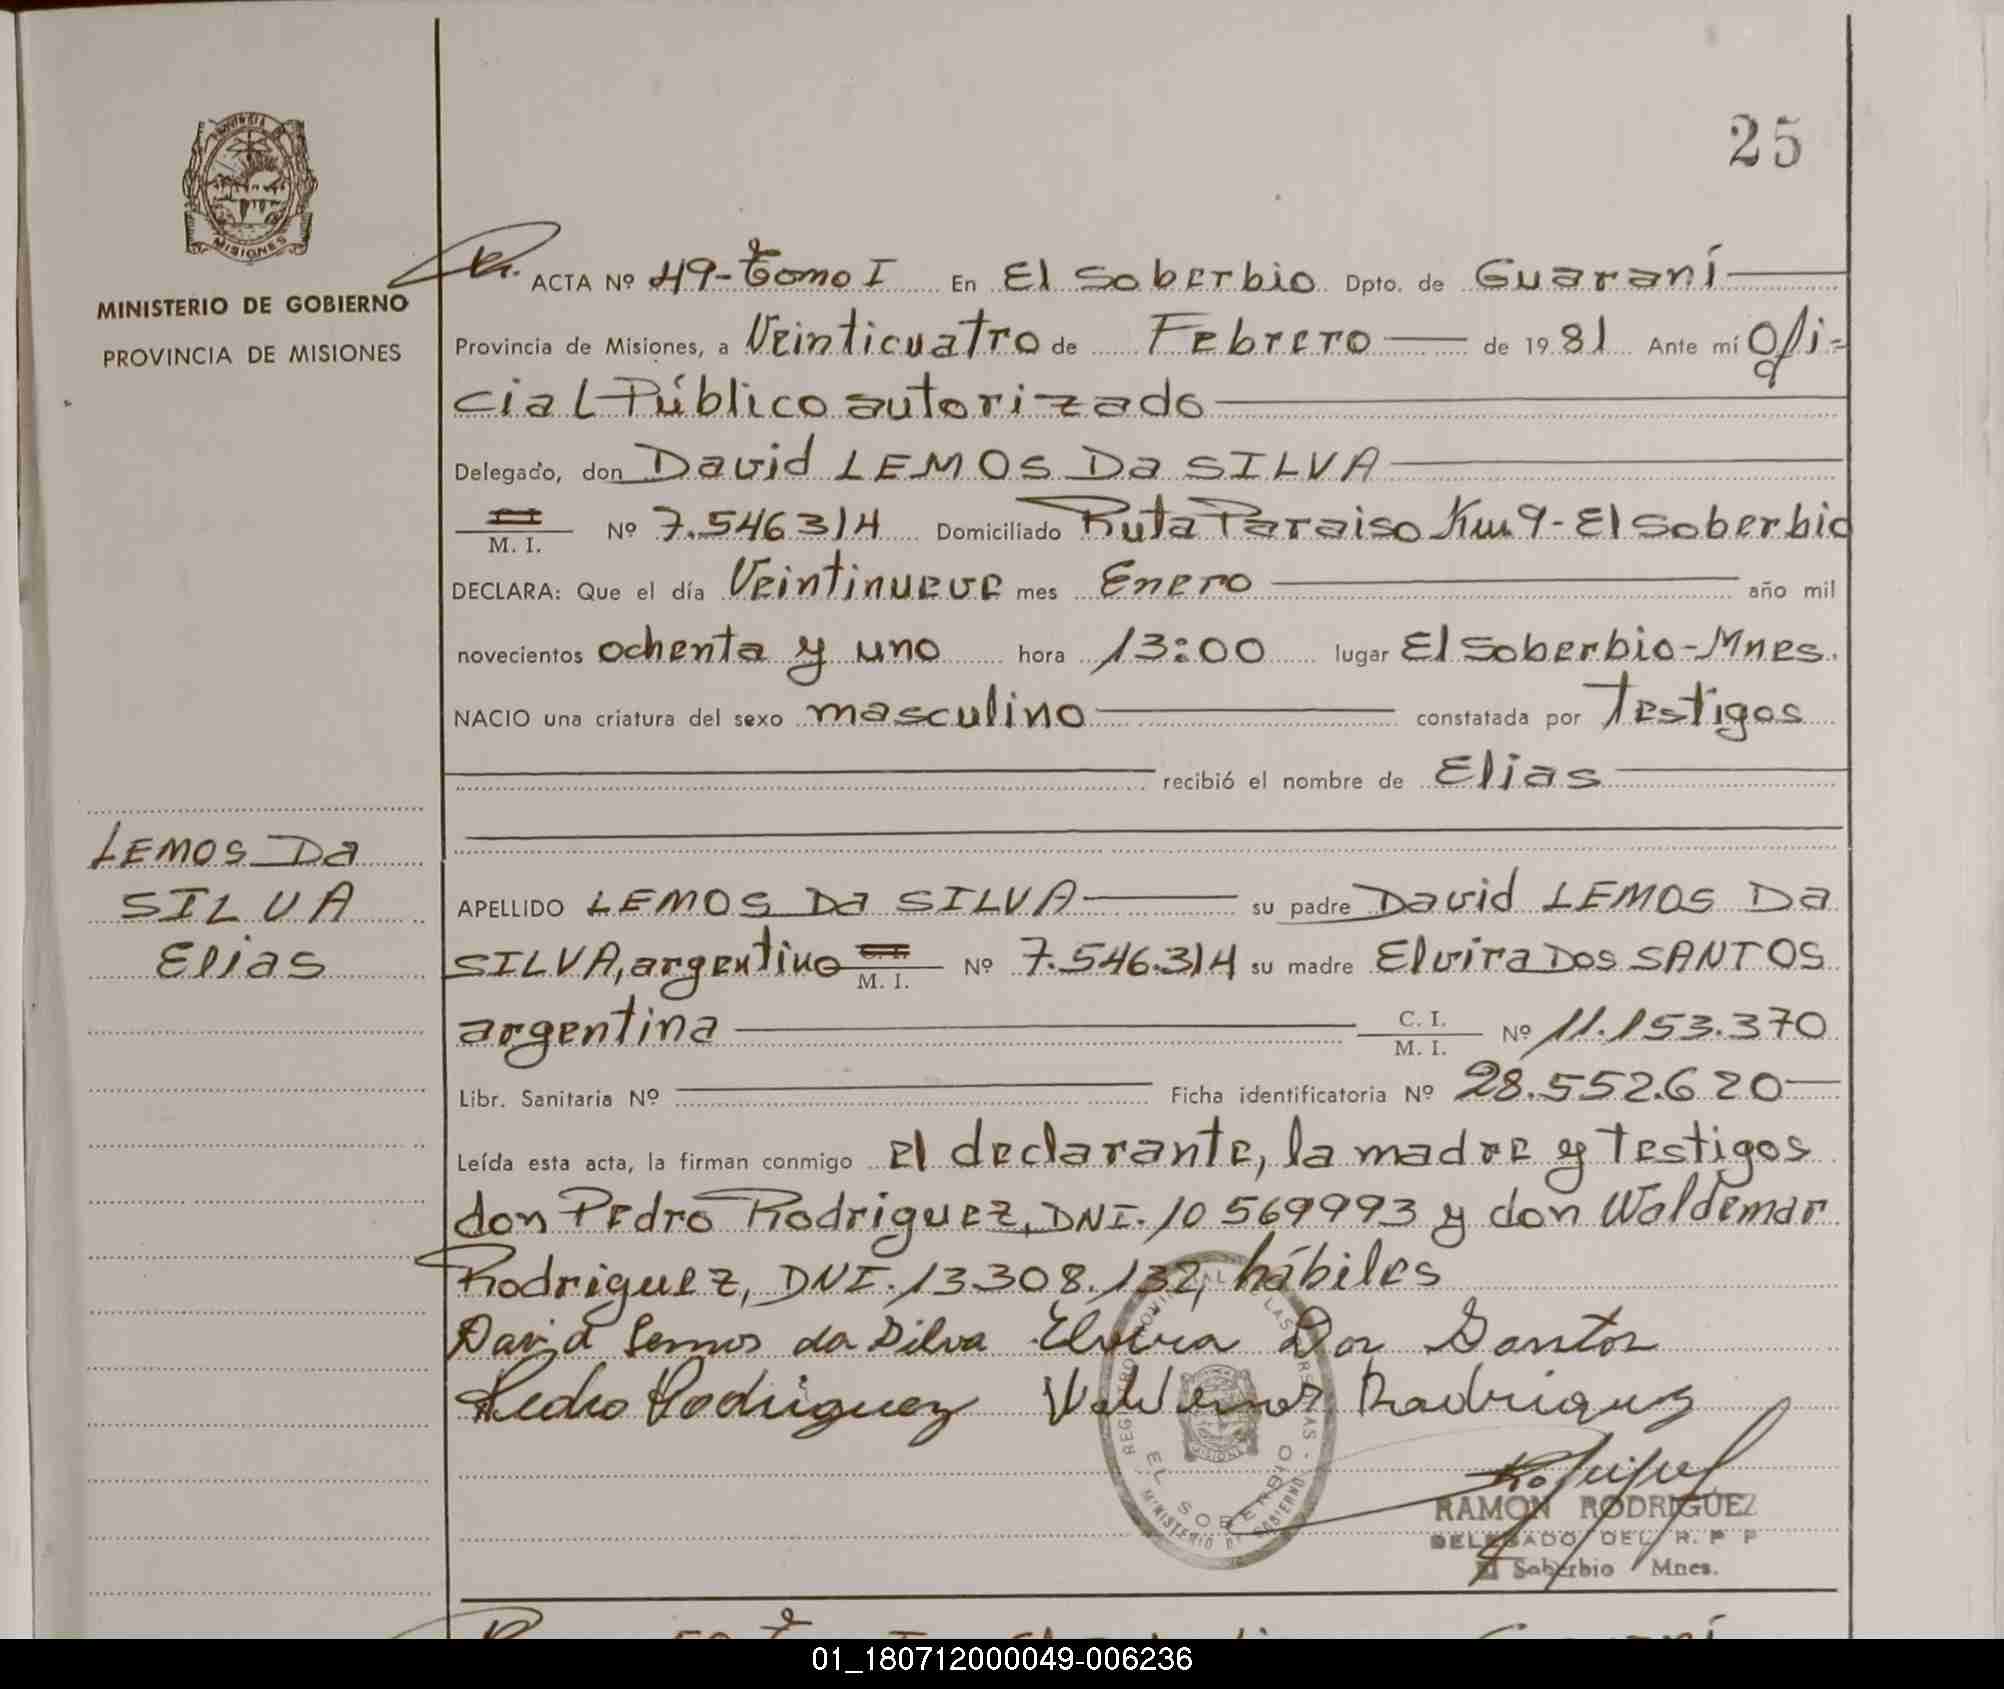 25
PROVINCIA DE
MISIONES
MINISTERIO DE GOBIERNO
PROVINCIA DE MISIONES
LEMOS Da
SILVA
Elias
ACTA Nº 49-Tomo I En El Soberbio Dpto. de Guaraní
Provincia de Misiones, a Veinticuatro de Febrero de 1981 Ante mí Ofi=
cial Público autorizado
Delegado, don David LEMOS Da SILVA
C. I. / M. I. Nº 7.546314 Domiciliado Ruta Paraiso Km 9-El Soberbio
DECLARA: Que el día Veintinueve mes Enero año mil
novecientos ochenta y uno hora 13:00 lugar El Soberbio-Mnes.
NACIO una criatura del sexo masculino constatada por Testigos
recibió el nombre de Elias
APELLIDO LEMOS Da SILVA su padre David LEMOS Da
SILVA, argentino C. I. / M. I. Nº 7.546.314 su madre Elvira Dos SANTOS
argentina C. I. / M. I. Nº 11.153.370
Libr. Sanitaria Nº Ficha identificatoria Nº 28.552.620
Leída esta acta, la firman conmigo el declarante, la madre y Testigos
don Pedro Rodriguez, DNI. 10 569993 y don Waldemar
Rodriguez, DNI. 13.308.132, hábiles
David Lemos da Silva Elvira Dos Santos
Pedro Rodriguez Valdemar Rodriguez
EL SOBERBIO
MINISTERIO DE GOBIERNO
RAMON RODRIGUEZ
DELEGADO DEL R. P P
El Soberbio Mnes.
01_180712000049-006236